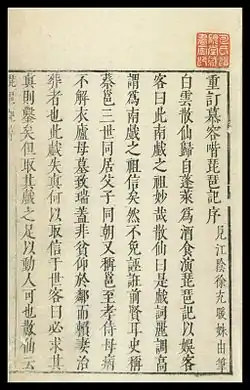 重訂慕容喈琵琶記序
白雲散仙歸自蓬萊為酒食演琵琶記以娛客
客曰此南戲之祖妙哉散仙曰是戲詞麗調高
謂為南戲之祖信矣然不免誣誑前賢耳史稱
蔡邕三世同居父子同朝又稱邕至孝侍母病
不解衣廬母墓致瑞蓋非貧仰於鄰而賴妻治
葬者也此戲失真何以取信于世客曰必求其
真則鑿矣但取其戲之足以動人可也散仙云